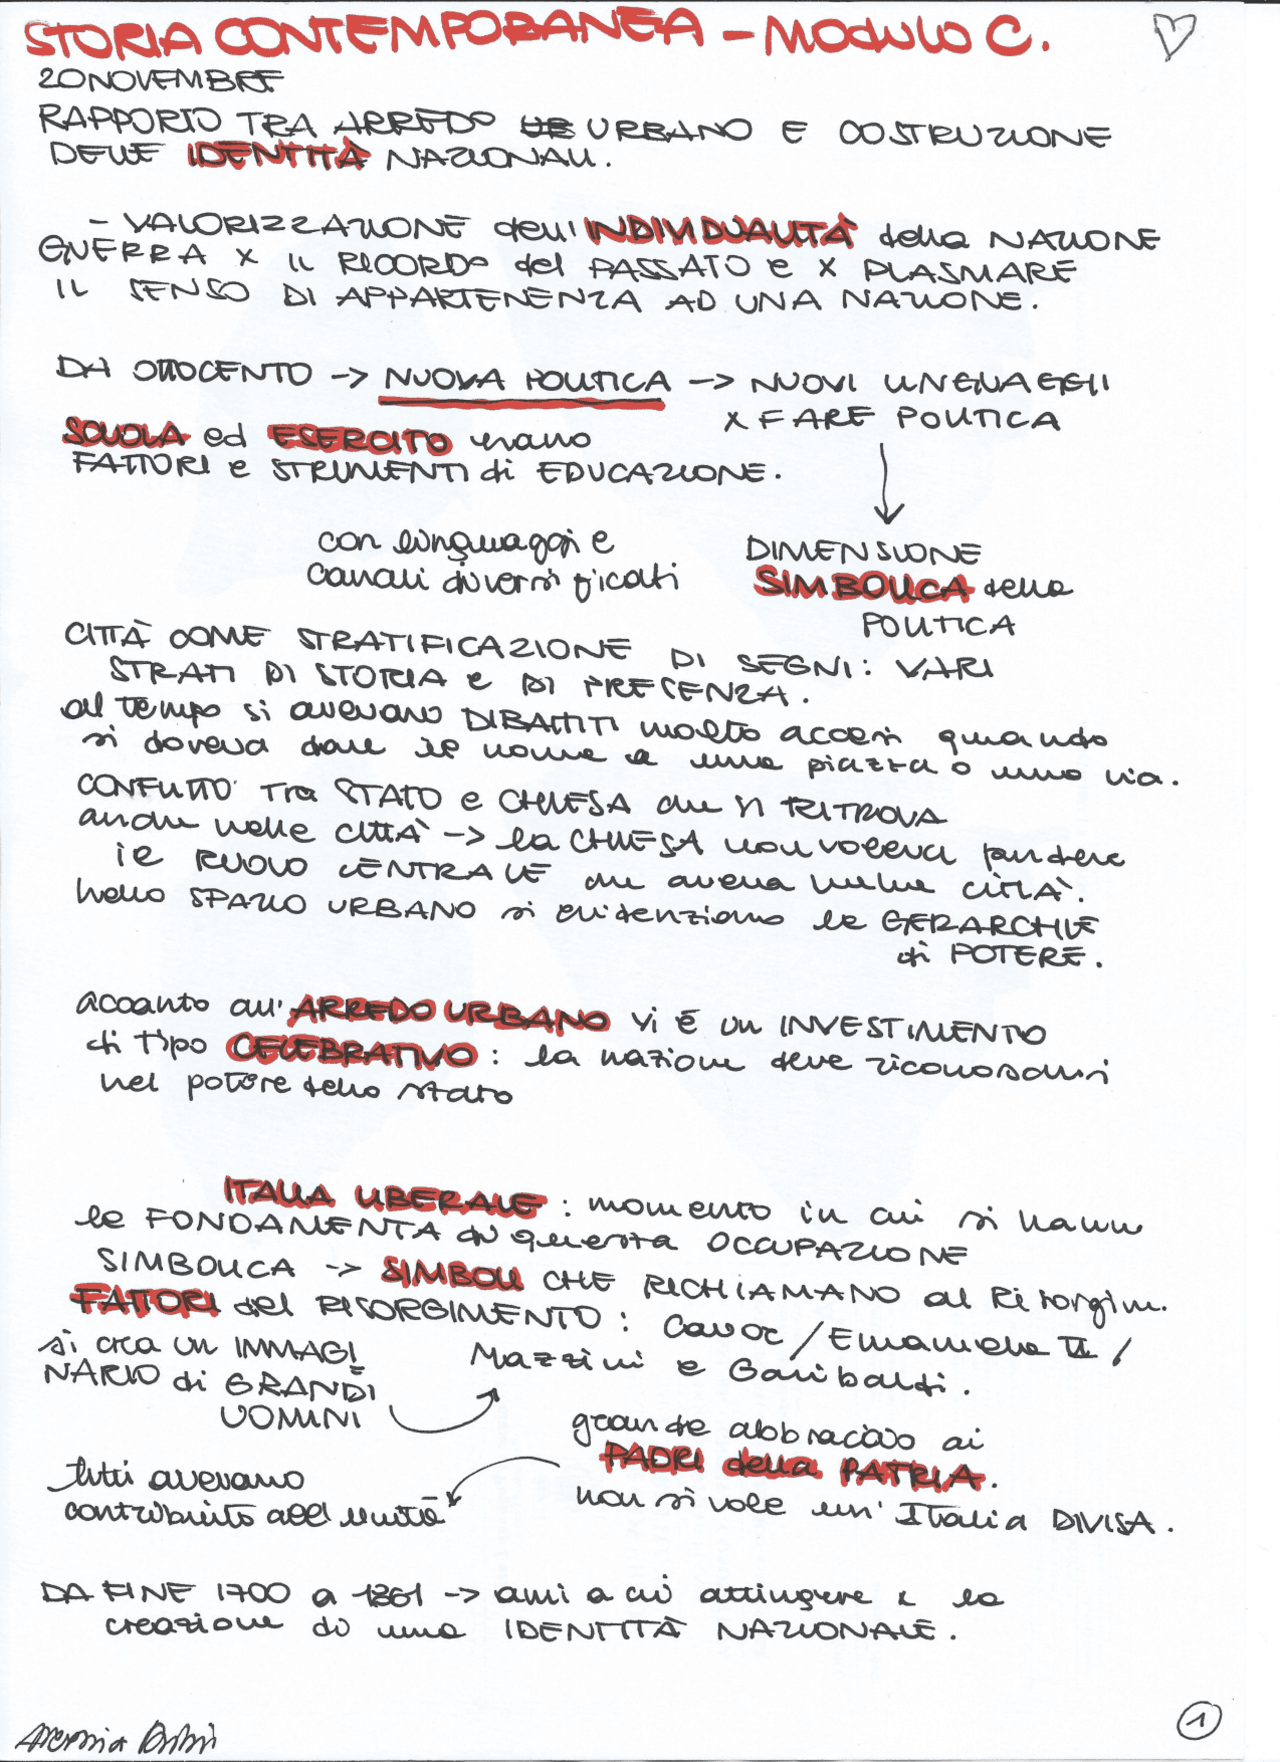 STORIA CONTEMPORANEA – MODULO C.
20 NOVEMBRE
RAPPORTO TRA ARREDO URBANO E COSTRUZIONE
DELLE IDENTITÀ NAZIONALI.
– VALORIZZAZIONE dell'INDIVIDUALITÀ della NAZIONE
GUERRA X IL RICORDO del PASSATO e X PLASMARE
IL SENSO DI APPARTENENZA AD UNA NAZIONE.
DA OTTOCENTO -> NUOVA POLITICA -> NUOVI LINGUAGGI
X FARE POLITICA
SCUOLA ed ESERCITO erano
FATTORI e STRUMENTI di EDUCAZIONE.
con linguaggi e
canali diversificati
DIMENSIONE
SIMBOLICA della
POLITICA
CITTÀ COME STRATIFICAZIONE DI SEGNI: VARI
STRATI DI STORIA e DI PRESENZA.
al tempo si avevano DIBATTITI molto accesi quando
si doveva dare il nome a una piazza o una via.
CONFLITTO TRA STATO e CHIESA che SI RITROVA
anche nelle CITTÀ -> la CHIESA non voleva perdere
il RUOLO CENTRALE che aveva nelle CITTÀ.
nello SPAZIO URBANO si evidenziano le GERARCHIE
di POTERE.
accanto all'ARREDO URBANO vi è un INVESTIMENTO
di tipo CELEBRATIVO: la nazione deve riconoscersi
nel potere dello stato
ITALIA LIBERALE: momento in cui si hanno
le FONDAMENTA di questa OCCUPAZIONE
SIMBOLICA -> SIMBOLI CHE RICHIAMANO al Risorgim.
FATTORI del RISORGIMENTO: Cavor / Emanuele II /
Mazzini e Garibaldi.
si crea un IMMAGI
NARIO di GRANDI
UOMINI
grande abbraccio ai
PADRI della PATRIA.
non si vole un'Italia DIVISA.
tutti avevano
contribuito all'unità
DA FINE 1700 a 1861 -> anni a cui attingere x la
creazione di una IDENTITÀ NAZIONALE.
1